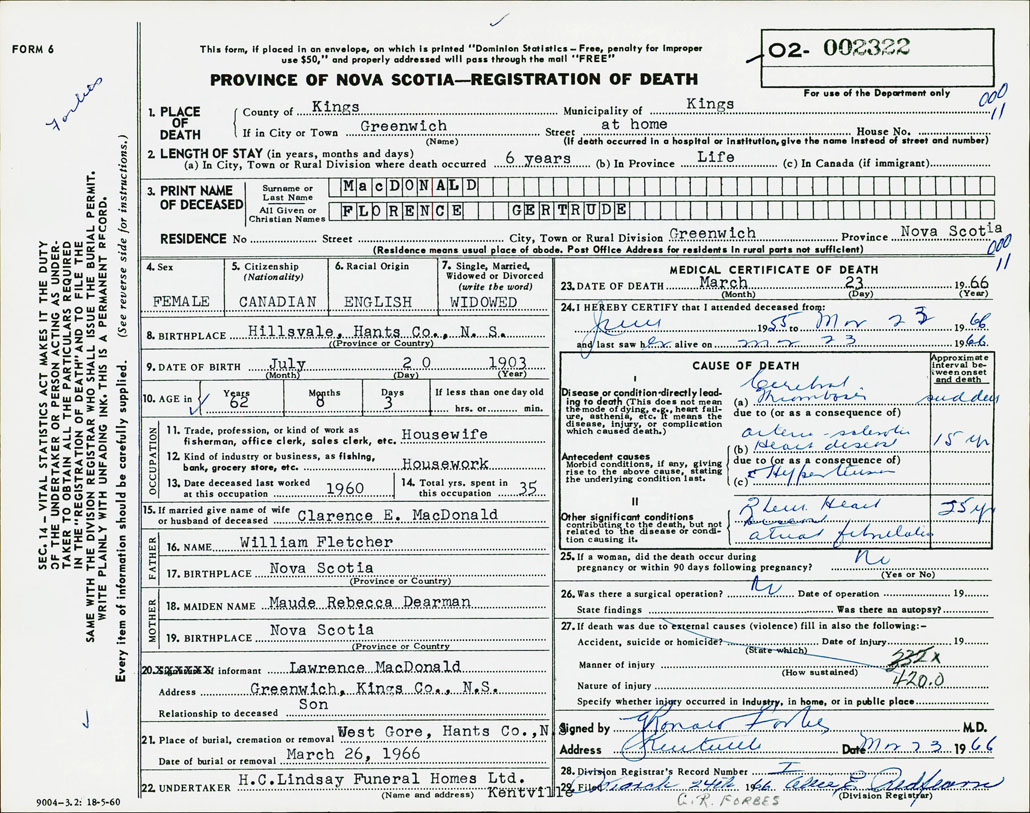 FORM 6
This form, if placed in an envelope, on which is printed "Dominion Statistics – Free, penalty for improper
use $50," and properly addressed will pass through the mail "FREE"
02- 002322
For use of the Department only
PROVINCE OF NOVA SCOTIA—REGISTRATION OF DEATH
Forbes
000
11
1. PLACE OF DEATH
County of Kings Municipality of Kings
If in City or Town Greenwich Street at home House No.
(Name) (If death occurred in a hospital or institution, give the name instead of street and number)
2. LENGTH OF STAY (in years, months and days)
(a) In City, Town or Rural Division where death occurred 6 years (b) In Province Life (c) In Canada (if immigrant)
3. PRINT NAME OF DECEASED
Surname or Last Name MacDONALD
All Given or Christian Names FLORENCE GERTRUDE
RESIDENCE No Street City, Town or Rural Division Greenwich Province Nova Scotia
(Residence means usual place of abode. Post Office Address for residents in rural parts not sufficient)
000
11
4. Sex FEMALE
5. Citizenship (Nationality) CANADIAN
6. Racial Origin ENGLISH
7. Single, Married, Widowed or Divorced (write the word) WIDOWED
8. BIRTHPLACE Hillsvale, Hants Co., N. S.
(Province or Country)
9. DATE OF BIRTH July 20 1903
(Month) (Day) (Year)
10. AGE in Years 62 Months 8 Days 3 If less than one day old hrs. or min.
OCCUPATION
11. Trade, profession, or kind of work as
fisherman, office clerk, sales clerk, etc. Housewife
12. Kind of industry or business, as fishing,
bank, grocery store, etc. Housework
13. Date deceased last worked
at this occupation 1960
14. Total yrs. spent in
this occupation 35
15. If married give name of wife
or husband of deceased Clarence E. MacDonald
FATHER
16. NAME William Fletcher
17. BIRTHPLACE Nova Scotia
(Province or Country)
MOTHER
18. MAIDEN NAME Maude Rebecca Dearman
19. BIRTHPLACE Nova Scotia
(Province or Country
20. of informant Lawrence MacDonald
Address Greenwich, Kings Co., N.S.
Relationship to deceased Son
21. Place of burial, cremation or removal West Gore, Hants Co., N.S.
Date of burial or removal March 26, 1966
22. UNDERTAKER H.C.Lindsay Funeral Homes Ltd.
(Name and address) Kentville
MEDICAL CERTIFICATE OF DEATH
23. DATE OF DEATH March 23 1966
(Month) (Day) (Year)
24. I HEREBY CERTIFY that I attended deceased from:
1955 to Mar 23 1966
and last saw her alive on Mar 23 1966
CAUSE OF DEATH
Approximate interval between onset and death
I
Disease or condition directly leading to death (This does not mean the mode of dying, e.g., heart failure, asthenia, etc. It means the disease, injury, or complication which caused death.)
(a) Cerebral Thrombosis sudden
due to (or as a consequence of)
arterio-sclerotic
(b) Heart disease 15 yr
Antecedent causes
Morbid conditions, if any, giving rise to the above cause, stating the underlying condition last.
due to (or as a consequence of)
(c) Hypertension
II
Other significant conditions
contributing to the death, but not related to the disease or condition causing it.
Rheu. Heart
atrial fibrillation
25. If a woman, did the death occur during
pregnancy or within 90 days following pregnancy? No
(Yes or No)
26. Was there a surgical operation? No Date of operation 19
State findings Was there an autopsy?
27. If death was due to external causes (violence) fill in also the following:-
Accident, suicide or homicide? Date of injury 19
(State which)
Manner of injury 332x
(How sustained)
Nature of injury 420.0
Specify whether injury occurred in industry, in home, or in public place
Signed by Ronald Forbes M.D.
Address Kentville Date Mar 23 1966
28. Division Registrar's Record Number
29. Filed March 24th 1966
(Division Registrar)
G.R. FORBES
SEC. 14 – VITAL STATISTICS ACT MAKES IT THE DUTY
OF THE UNDERTAKER OR PERSON ACTING AS UNDER-
TAKER TO OBTAIN ALL THE PARTICULARS REQUIRED
IN THE "REGISTRATION OF DEATH" AND TO FILE THE
SAME WITH THE DIVISION REGISTRAR WHO SHALL ISSUE THE BURIAL PERMIT.
WRITE PLAINLY WITH UNFADING INK. THIS IS A PERMANENT RECORD.
Every item of information should be carefully supplied. (See reverse side for instructions.)
9004–3.2: 18-5-60